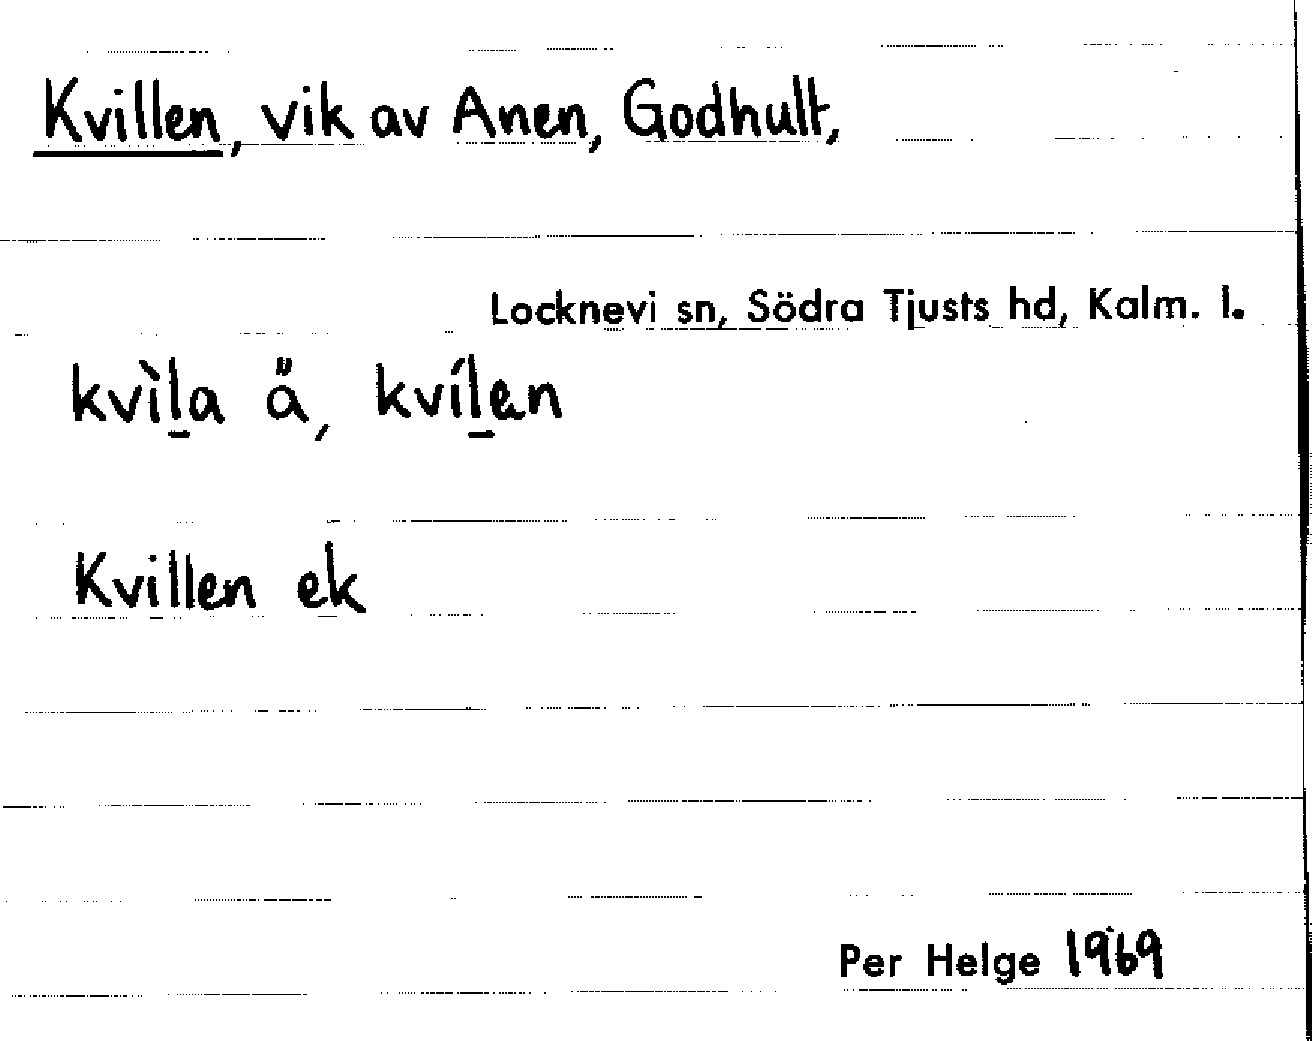 Kvillen, vik av Anen, Godhult,
Locknevi sn, Södra Tjusts hd, Kalm. l.
kvìl̲a å̈, kvíl̲en
Kvillen ek
Per Helge 1969